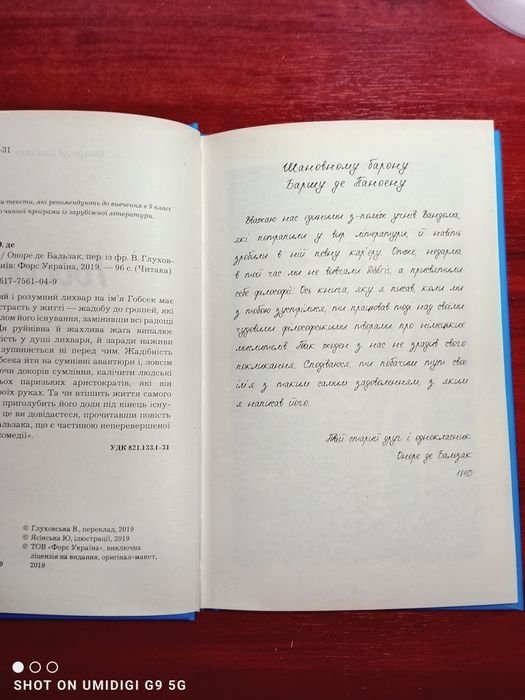 -31
и тексти, які рекомендують до вивчення в 9 класі
чинної програми із зарубіжної літератури.
О. де
/ Оноре де Бальзак; пер. із фр. В. Глухов-
иїв: Форс Україна, 2019. — 96 с. (Читака)
617-7561-04-9
ий і розумний лихвар на ім'я Гобсек має
страсть у житті — жадобу до грошей, які
лом його існування, замінивши всі радощі
Ця руйнівна й жахлива жага випалює
ість у душі лихваря, й заради наживи
зупиняється ні перед чим. Жадібність
бсека йти на сумнівні авантюри і, зовсім
ючи докорів сумління, калічити людські
ьох паризьких аристократів, які він
воїх руках. Та чи втішить життя самого
приголубить його доля під кінець існу-
це ви довідаєтеся, прочитавши повість
альзака, що є частиною неперевершеної
комедії».
УДК 821.133.1-31
© Глуховська В., переклад, 2019
© Ясінська Ю., ілюстрації, 2019
© ТОВ «Форс Україна», виключна
ліцензія на видання, оригінал-макет,
2019
9
Шановному барону
Баршу де Паноену
Вважаю нас єдиними з-поміж учнів Вандома,
які потрапили у вир літератури, й навіть
зробили в ній певну кар'єру. Отже, недарма
в той час ми не вивчали debiis, а присвятили
себе філософії. Ось книга, яку я писав, коли ми
з тобою зустрілися, ти працював тоді над своїми
чудовими філософськими творами про німецьких
мислителів. Так жоден з нас не зрадив свого
покликання. Сподіваюся, ти побачиш тут своє
ім'я з таким самим задоволенням, з яким
я написав його.
Твій старий друг і однокласник
Оноре де Бальзак
1840
SHOT ON UMIDIGI G9 5G